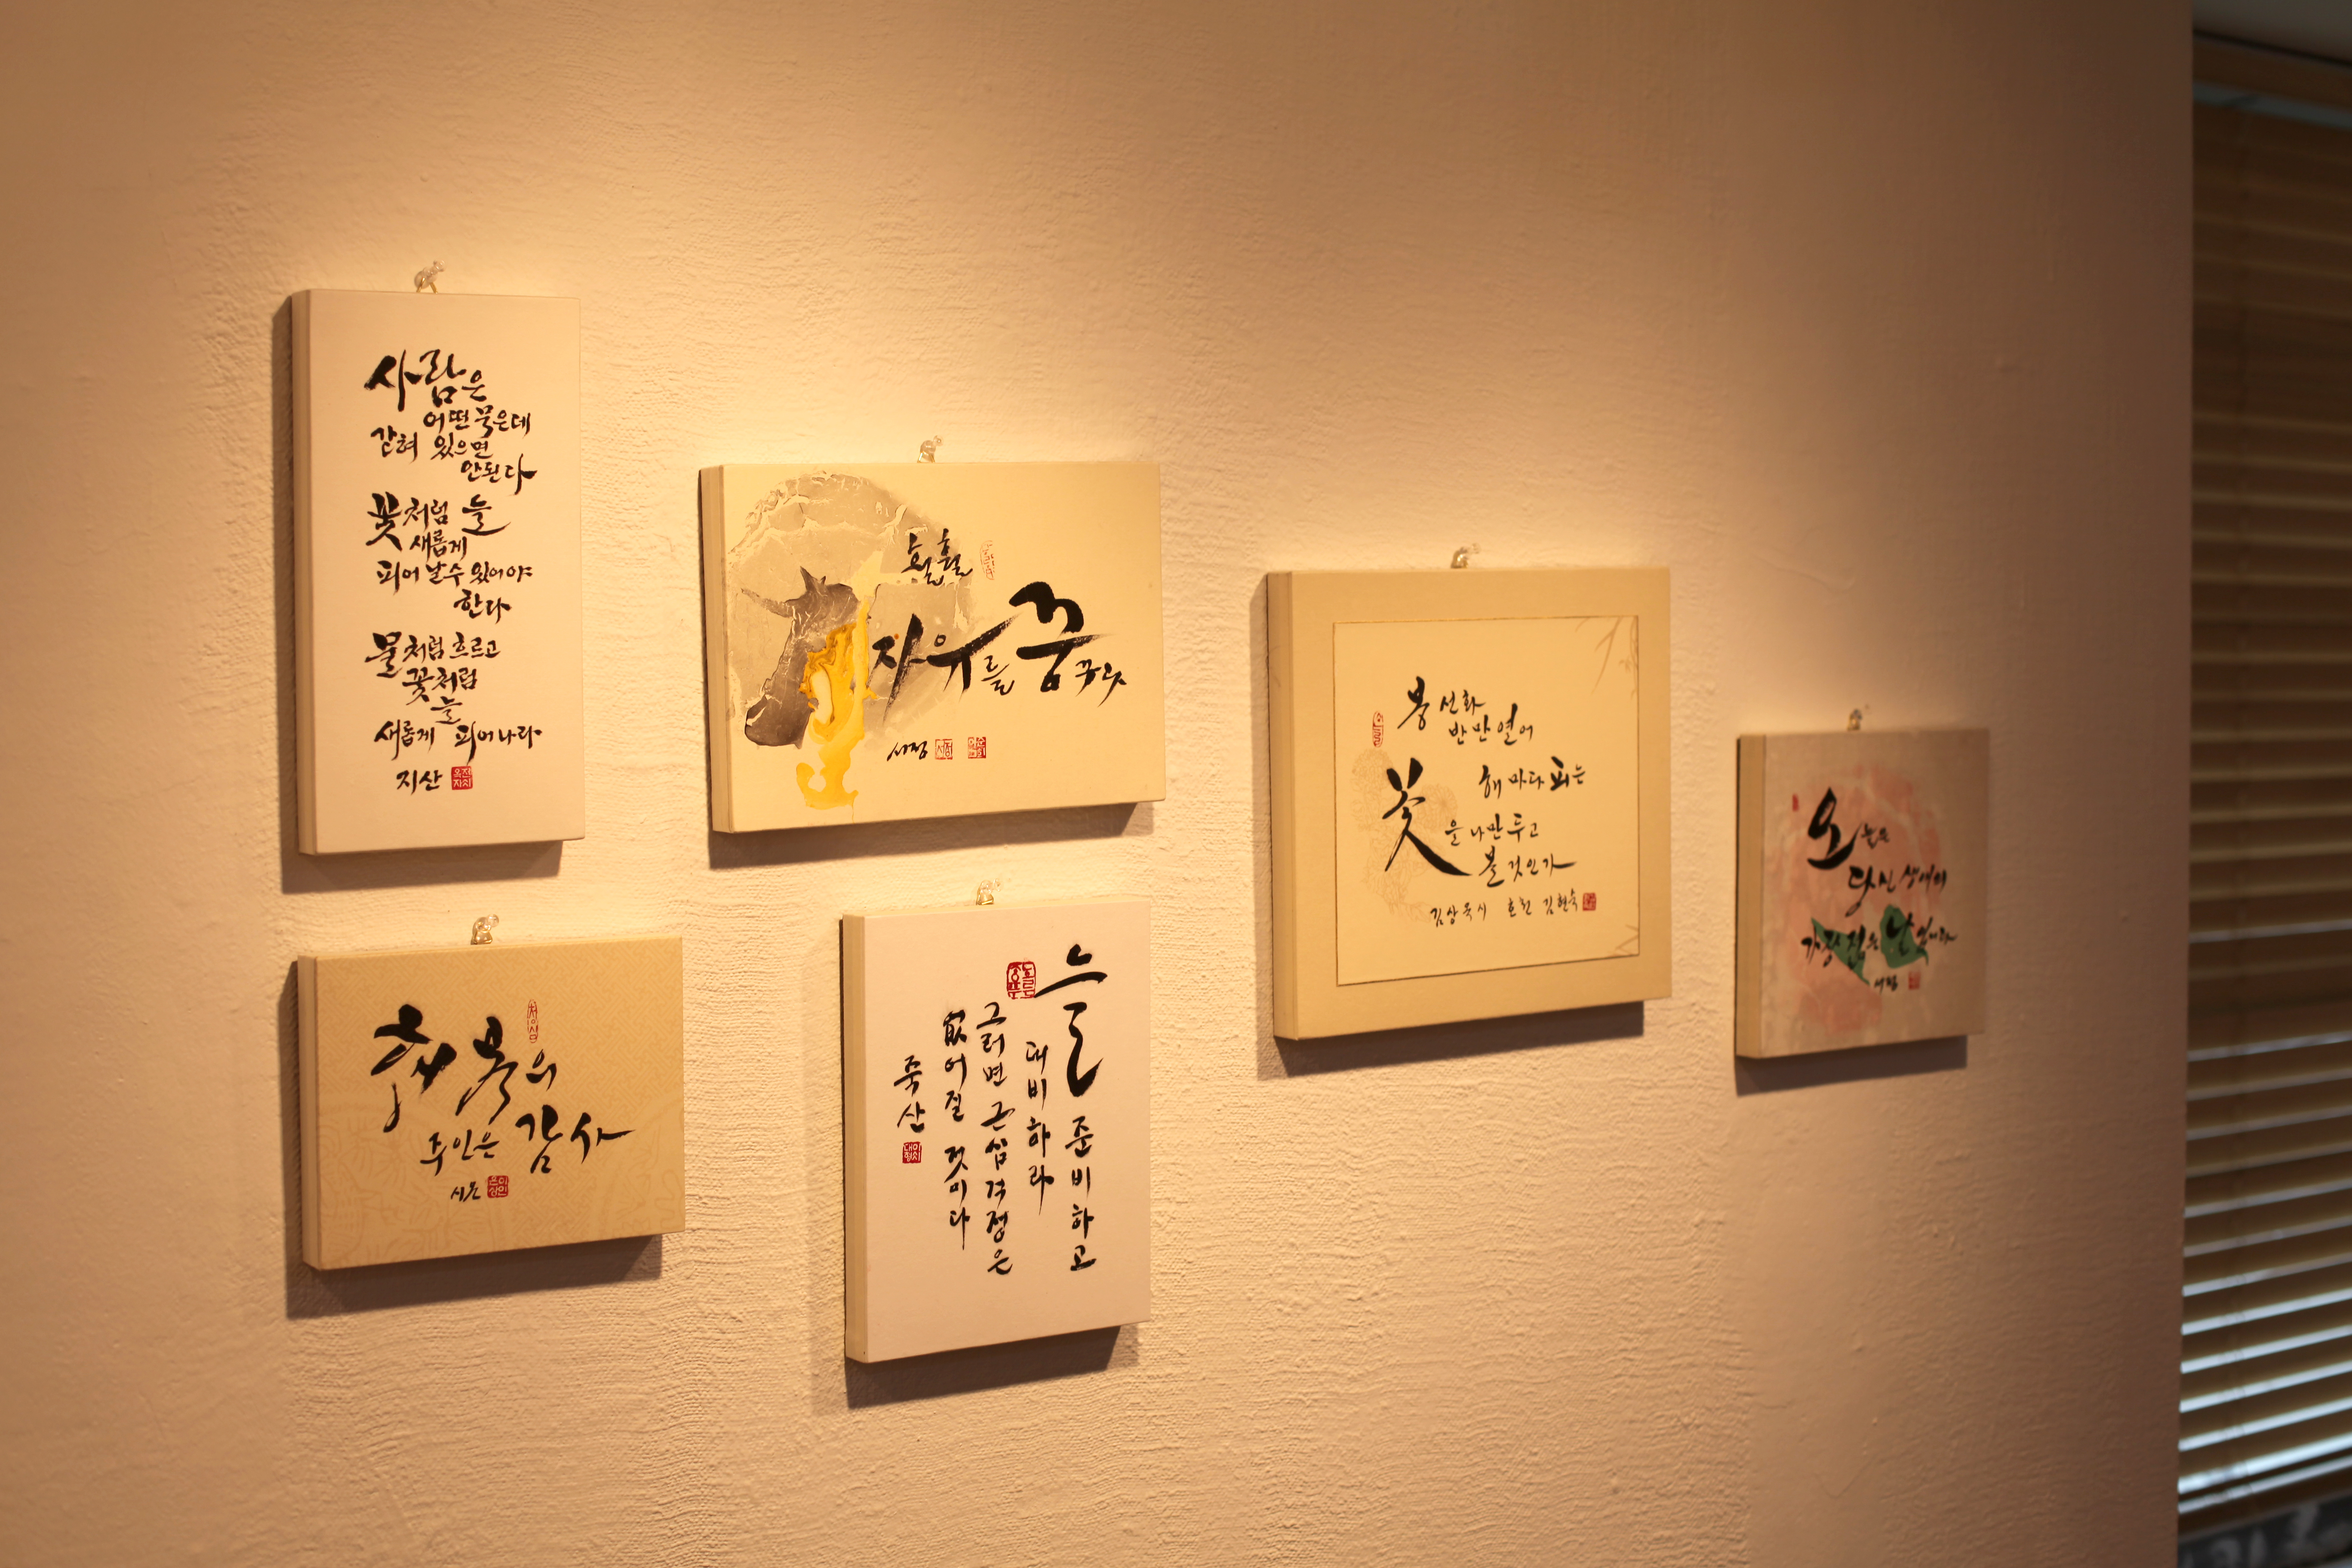 사람은
어떤 묵은데
갇혀 있으면
안된다
꽃처럼 늘
새롭게
피어 날수 있어야
한다
물처럼 흐르고
꽃처럼
늘
새롭게 피어나라
지산
훨훨
자유를 꿈꾸다
서정 서정
행복의
주인은 감사
시온
늘 준비하고
대비하라
그러면 근심 걱정은
없어질 것이다
죽산
봉선화
반만 열어
해마다 피는
꽃을 나만 두고
볼 것인가
김상옥 시 김현숙
오늘은
당신 생애의
가장 젊은 날